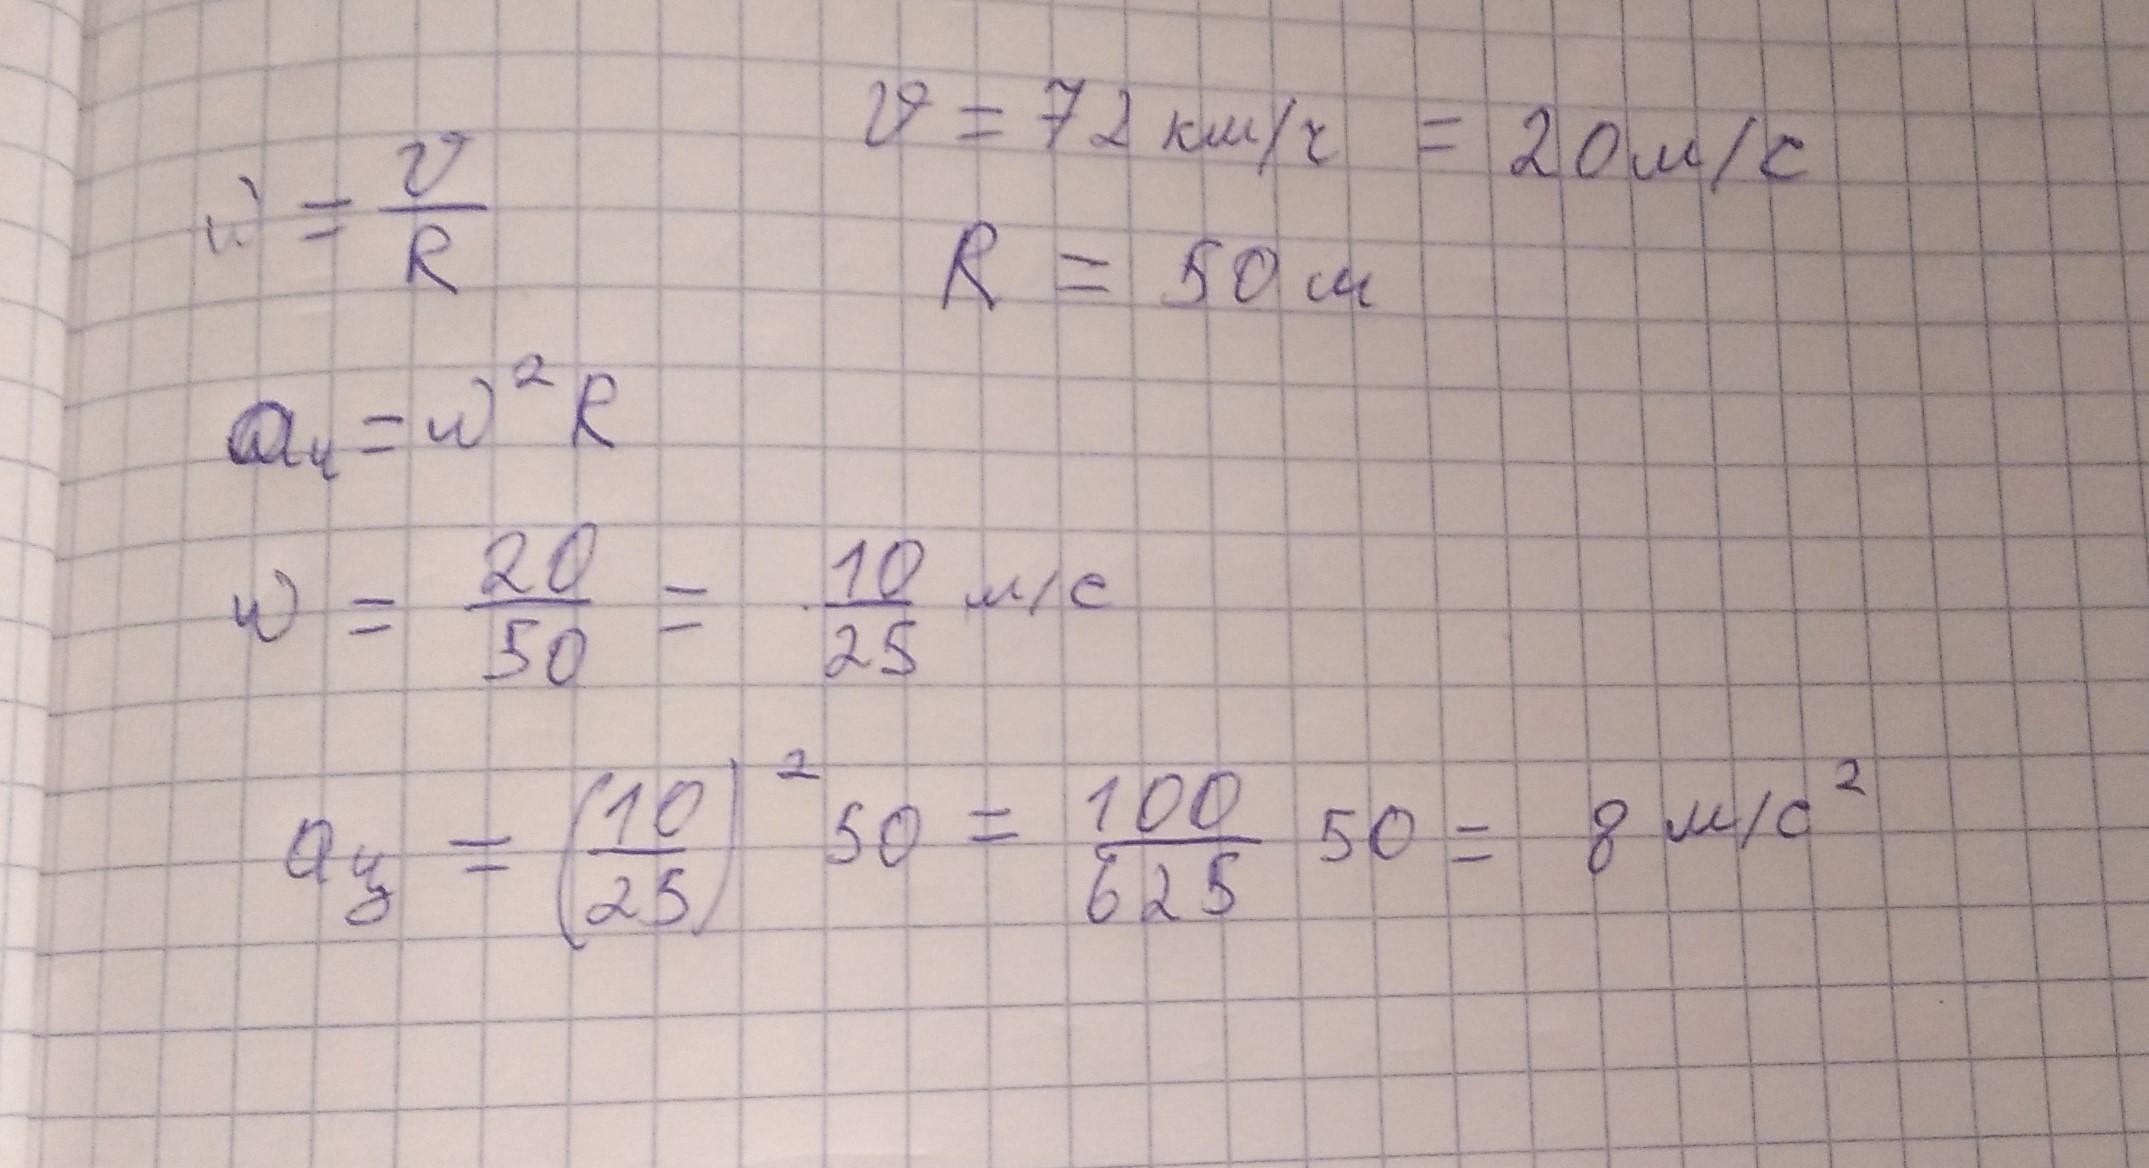 ω = v/R
v = 72 км/ч = 20 м/с
R = 50 м
aц = ω² R
ω = 20/50 = 10/25 м/с
aц = (10/25)² 50 = 100/625 50 = 8 м/с²